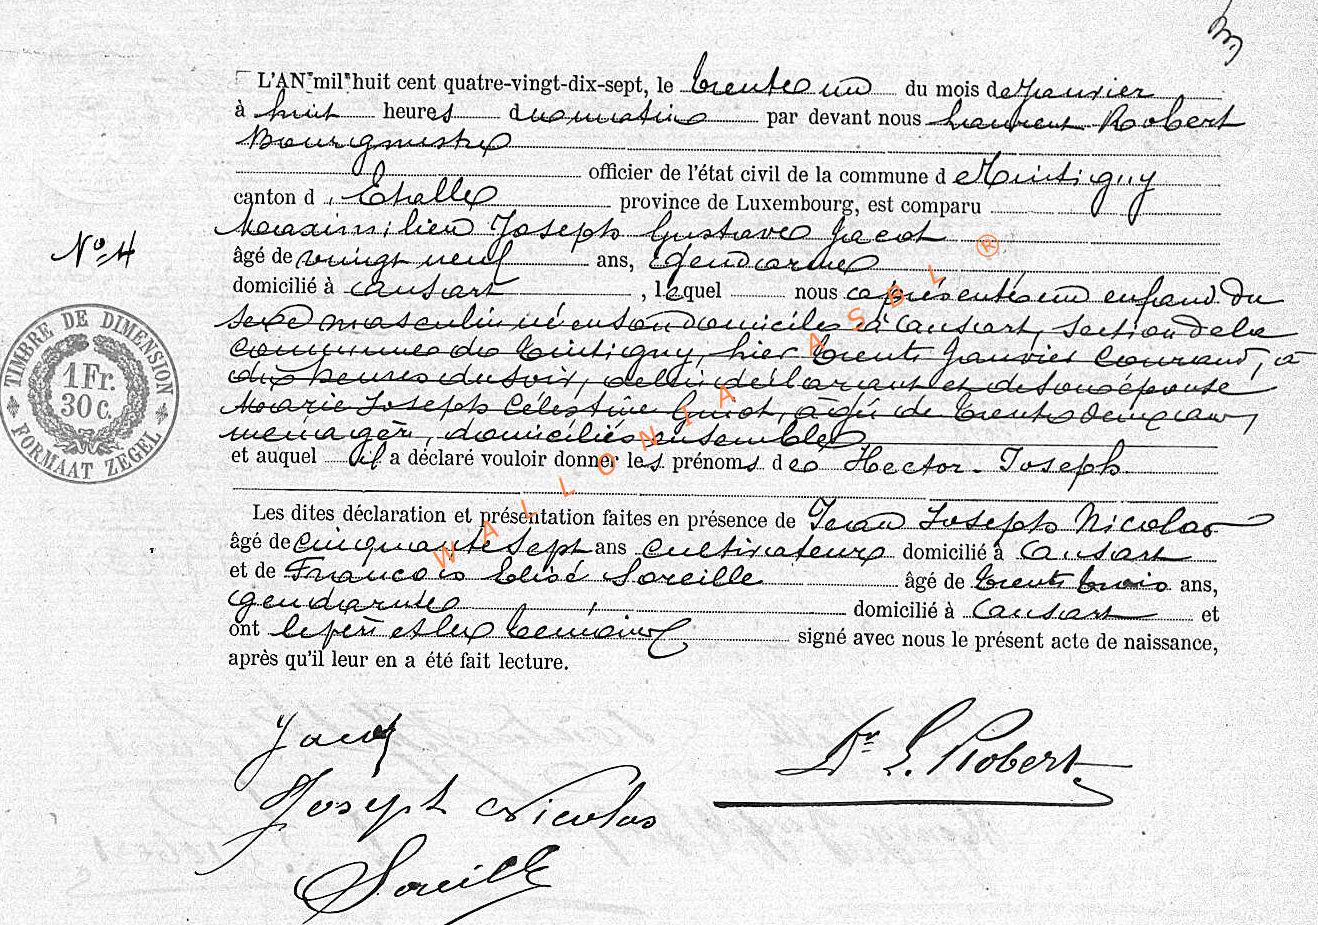 L'AN mil huit cent quatre-vingt-dix-sept, le trente un du mois de Janvier
à huit heures du matin par devant nous Laurent Robert
Bourgmestre
officier de l'état civil de la commune de Tintigny
canton d'Etalle province de Luxembourg, est comparu
Maximilien Joseph Gustave Jacot
N° 4
âgé de vingt neuf ans, Gendarme
domicilié à Lansart, lequel nous a présenté un enfant du
sexe masculin né en son domicile à Lansart, section de la
commune de Tintigny, hier trente Janvier courant, à
dix heures du soir, de lui déclarant et de son épouse
Marie Joseph Célestine Guiot, âgée de trente deux ans,
ménagère, domiciliés ensemble
et auquel il a déclaré vouloir donner les prénoms de Hector-Joseph
Les dites déclaration et présentation faites en présence de Jean Joseph Nicolas
âgé de cinquante sept ans cultivateur domicilié à Lansart
et de François Elisé Soreille âgé de trente trois ans,
gendarme domicilié à Lansart et
ont le père et les témoins signé avec nous le présent acte de naissance,
après qu'il leur en a été fait lecture.
TIMBRE DE DIMENSION
1 Fr.
30 C.
FORMAAT ZEGEL
WALLONIA ASBL ®
Jacot
Dr L. Robert
Joseph Nicolas
Soreille